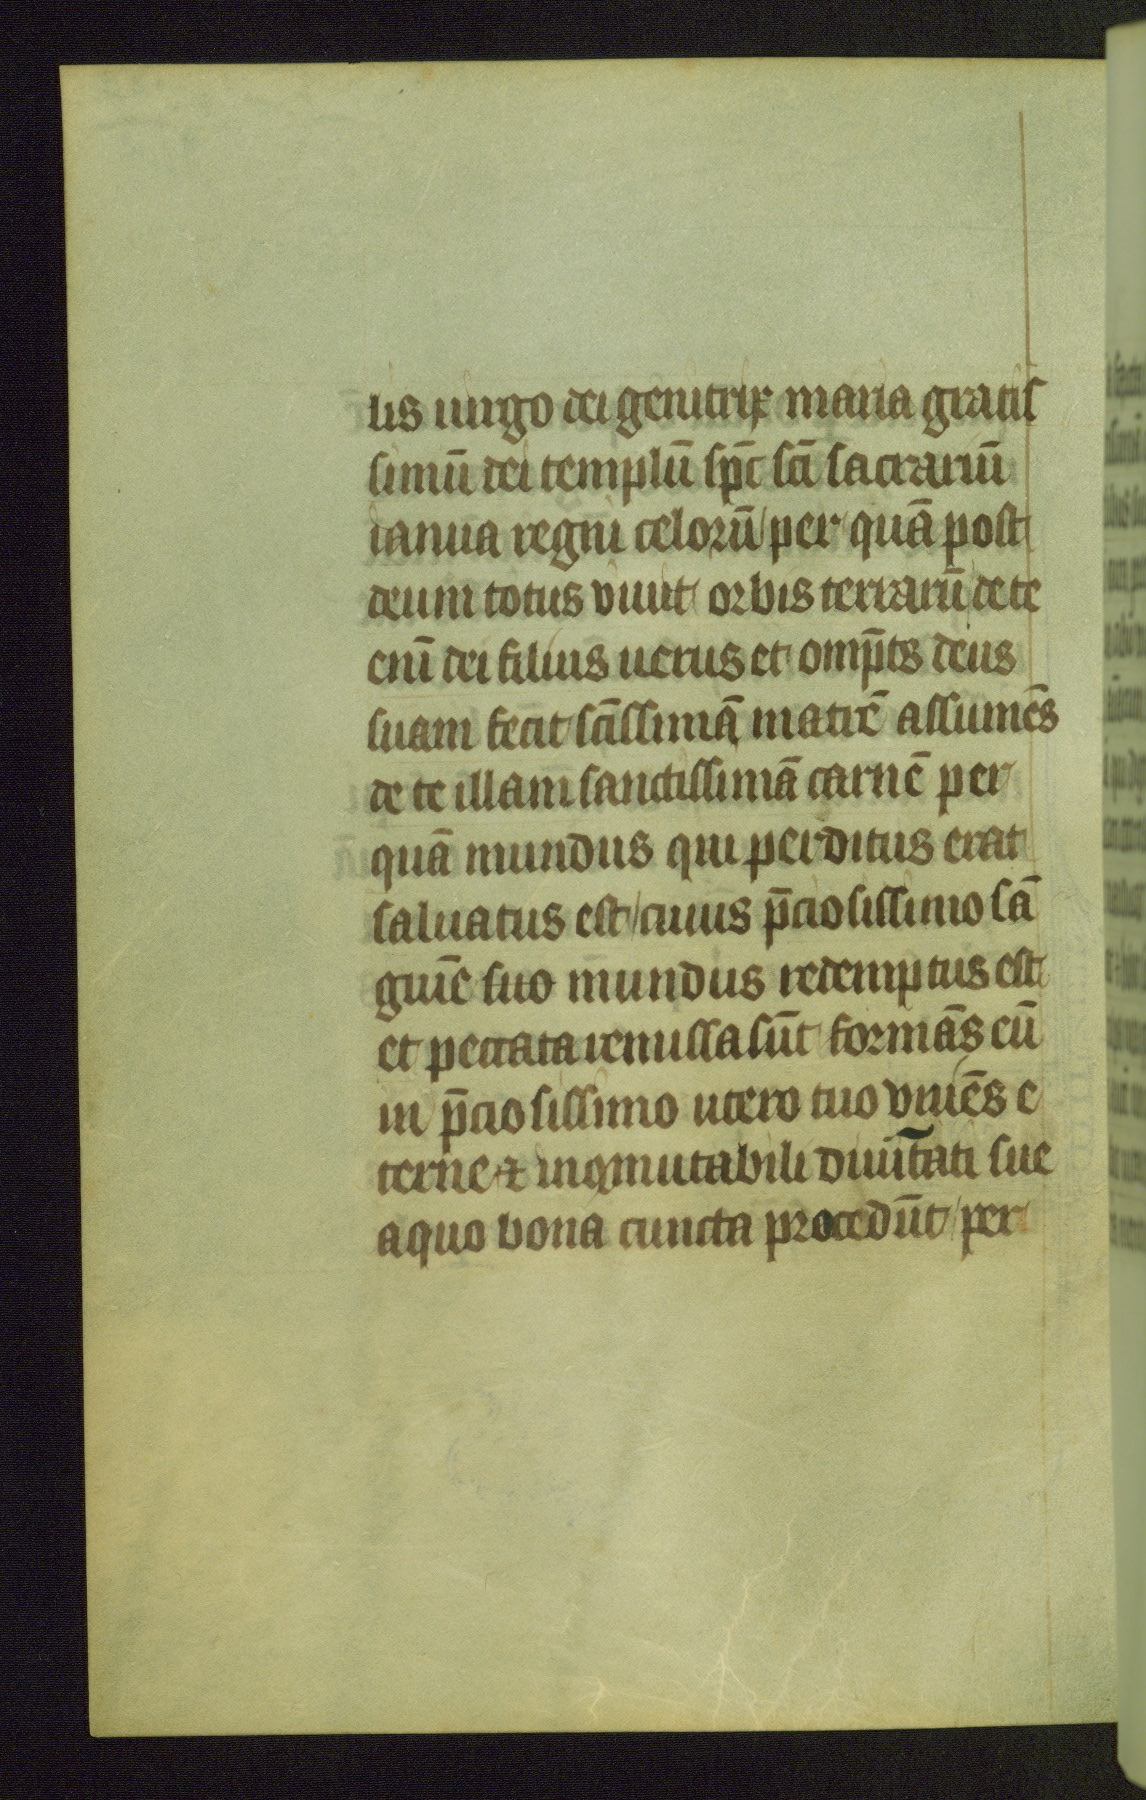 lis uirgo dei genitrix maria gratis
simū dei templū sp̄c sc̄i sacrariū
ianua regni celorū/per quā post
deum totus viuit/ orbis terrarū de te
enī dei filius uerus et omp̄ts deus
suam fecit sc̄issimā matrē assumēs
de te illam sanctissimā carnē per
quā mundus qui perditus erat
saluatus est/cuius p̄ciosissimo sā
guīe suo mundus redemptus est
et peccata remissa sūt formās eū
in p̄ciosissimo utero tuo viuēs e
terne & inqmutabili diuītati sue
a quo bona cuncta procedūt/per